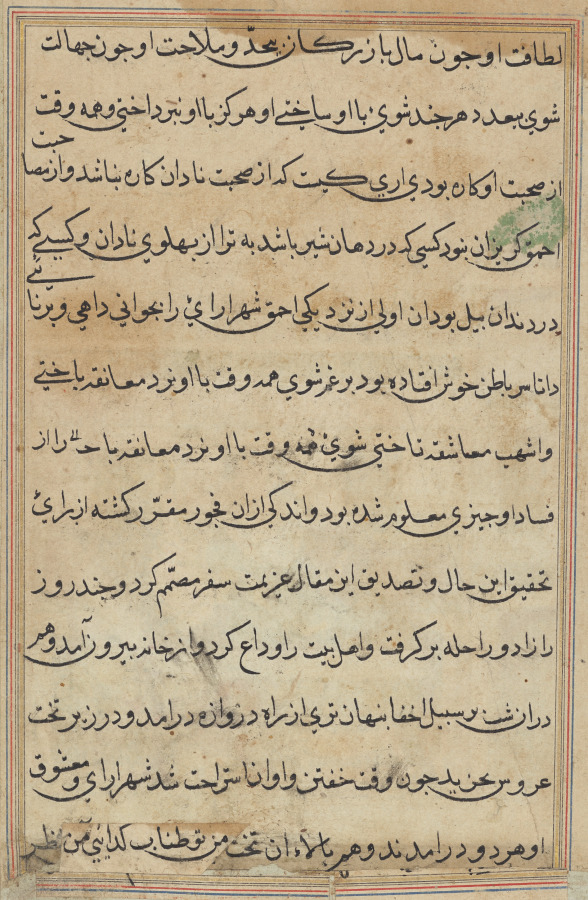 لطافت او جون مال بازرکان بیحدّ و ملاحت او جون جهالت
شوی بیعدد هرجند شوی با او ساختی او هرکز با او نبرداختی و همه وقت
از صحبت او کاره بودی اری کیست که از صحبت نادان کاره نباشد و از مصاحبت
احمق کریزان نبود کسی که در دهان شیر باشد به ترا از بهلوی نادان و کسی که
در دندان بیل بود ان اولی از نزدیکی احمق شهرارای را بجوانی داهی و برنائی
دانا سر باطن خوش افتاده بود برغم شوی همه وقت با او نرد معانقه باختی
واشهب معاشقه تاختی شوی همه وقت با او نرد معانقه باحالی را از
فساد او جیزی معلوم شده بود و اندکی ازان فجور مقرّر کشته از برای
تحقیق این حال و تصدیق این مقال عزیمت سفر مصمّم کرد و جند روز
را زاد و راحله بر کرفت و اهل بیت را وداع کرد و از خانه بیرون آمد و هم
دران شب بر سبیل اخفا بنهان تری از راه دروازه درامد و در زیر تخت
عروس بخزید جون وقت خفتن و اوان استراحت شد شهرارای و معشوق
او هر دو درامدند و هم بالاء ان تخت من تو طناب کدایی من نظر